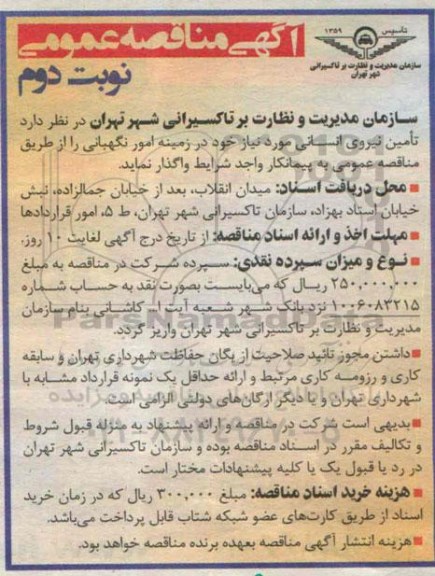 آگهی مناقصه عمومی
نوبت دوم
تاسیس ۱۳۵۹
سازمان مدیریت و نظارت بر تاکسیرانی
شهر تهران
سازمان مدیریت و نظارت بر تاکسیرانی شهر تهران در نظر دارد
تأمین نیروی انسانی مورد نیاز خود در زمینه امور نگهبانی را از طریق
مناقصه عمومی به پیمانکار واجد شرایط واگذار نماید.
■ محل دریافت اسناد: میدان انقلاب، بعد از خیابان جمالزاده، نبش
خیابان استاد بهزاد، سازمان تاکسیرانی شهر تهران، ط ۵، امور قراردادها
■ مهلت اخذ و ارائه اسناد مناقصه: از تاریخ درج آگهی لغایت ۱۰ روز.
■ نوع و میزان سپرده نقدی: سپرده شرکت در مناقصه به مبلغ
۲۵۰,۰۰۰,۰۰۰ ریال که می‌بایست بصورت نقد به حساب شماره
۱۰۰۶۰۸۳۲۱۵ نزد بانک شهر شعبه آیت ا... کاشانی بنام سازمان
مدیریت و نظارت بر تاکسیرانی شهر تهران واریز گردد.
■ داشتن مجوز تائید صلاحیت از یگان حفاظت شهرداری تهران و سابقه
کاری و رزومه کاری مرتبط و ارائه حداقل یک نمونه قرارداد مشابه با
شهرداری تهران و یا دیگر ارگان‌های دولتی الزامی است.
■ بدیهی است شرکت در مناقصه و ارائه پیشنهاد به منزله قبول شروط
و تکالیف مقرر در اسناد مناقصه بوده و سازمان تاکسیرانی شهر تهران
در رد یا قبول یک یا کلیه پیشنهادات مختار است.
■ هزینه خرید اسناد مناقصه: مبلغ ۳۰۰,۰۰۰ ریال که در زمان خرید
اسناد از طریق کارت‌های عضو شبکه شتاب قابل پرداخت می‌باشد.
■ هزینه انتشار آگهی مناقصه بعهده برنده مناقصه خواهد بود.
ParsNamadData